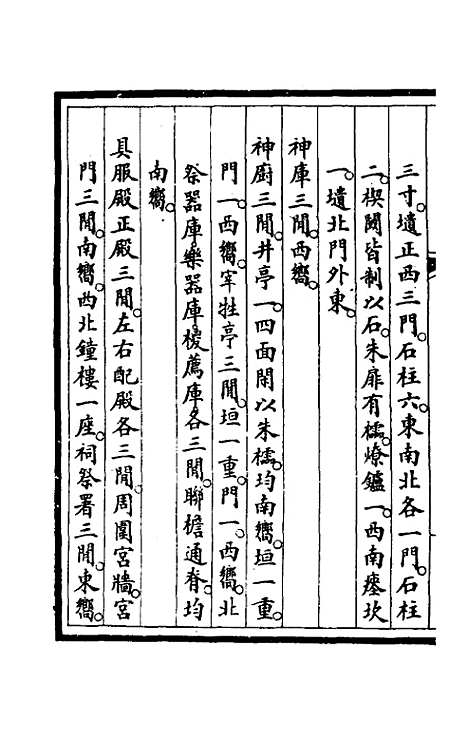 三寸。壝正西三門。石柱六。東南北各一門。石柱
二。楔閾皆制以石。朱扉有櫺。燎鑪一。西南瘞坎
一。壝北門外東。
神庫三閒。西嚮。
神廚三閒。井亭一。四面閑以朱櫺。均南嚮。垣一重
門一。西嚮。宰牲亭三閒。垣一重。門一。西嚮。北
祭器庫。樂器庫。椶薦庫。各三閒。聯檐通脊。均
南嚮。
具服殿正殿三閒。左右配殿各三閒。周圍宮牆。宮
門三閒。南嚮。西北鐘樓一座。祠祭署三閒。東嚮。